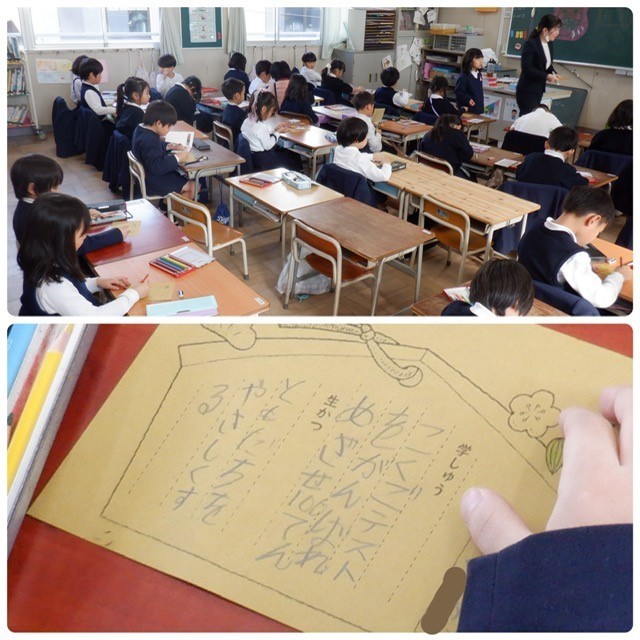 学しゅう
こくごテスト
をがんばれ
めざせ100てん
生かつ
ともだちを
やさしくす
る